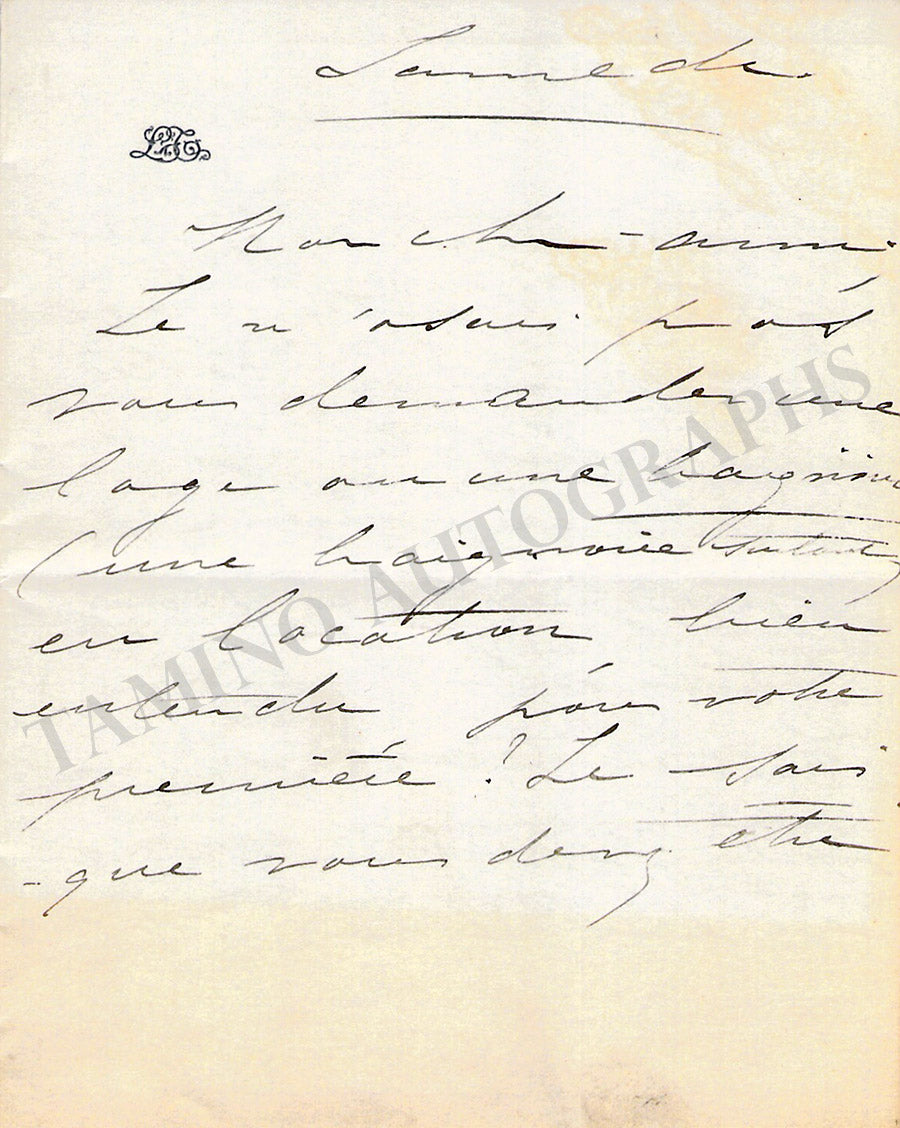 Samedi.
Mon cher ami.
Je n'osais pas
vous demander une
loge ou une baignoire
(une baignoire surtout)
en location bien
entendu pour votre
première ? Je sais
que vous devez être
TAMINO AUTOGRAPHS